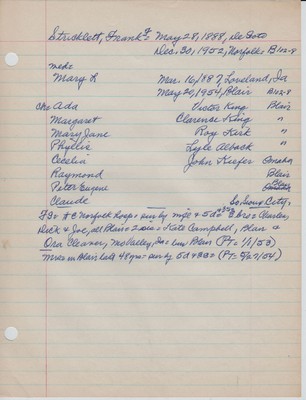 Stricklett, Frank F May 28, 1888, De Soto
Dec. 30, 1952, Norfolk B112-8
Mary L Mar. 16, 1887, Loveland, Ia
May 20, 1954, Blair B112-8
Ch: Ada Victor King Blair
Margaret Clarence King "
Mary Jane Roy Kirk "
Phyllis Lyle Alback "
Cecelia John Kiefer Omaha
Raymond Blair
Peter Eugene Blair
Claude So Sioux City,
Norfolk hosp = surv by wife & 5d &
Dick & Joe, all Blair = 2 sis = Kate Campbell, Blair &
Ora Cleaver, Mo Valley, Ia = bur Blair (PT = 1/1/53)
Mrs in Blair 48 yrs = surv by 5d & (PT = 5/27/54)